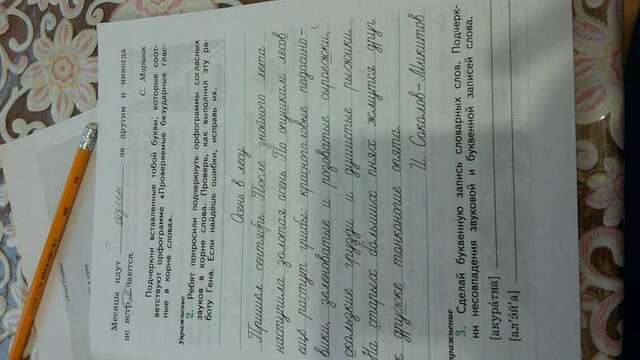 Месяцы идут один за другим и никогда
не встречаются.
С. Маршак
Подчеркни вставленные тобой буквы, которые соот-
ветствуют орфограмме «Проверяемые безударные глас-
ные в корне слова».
Упражнение
2. Ребят попросили подчеркнуть орфограммы согласных
звуков в корне слова. Проверь, как выполнил эту ра-
боту Гена. Если найдёшь ошибки, исправь их.
Осень в лесу.
Пришёл сентябрь. После знойного лета
наступила золотая осень. По опушкам лесов
ещё растут грибы: красноголовые подосино-
вики, зеленоватые и розоватые сыроежки,
скользкие грузди и душистые рыжики.
На старых больших пнях жмутся друг
к дружке тонконогие опята.
И. Соколов-Микитов
пражнение
3. Сделай буквенную запись словарных слов. Подчерк-
ни несовпадения звуковой и буквенной записей слова.
[акура́тна]
[ал'э́й'а]